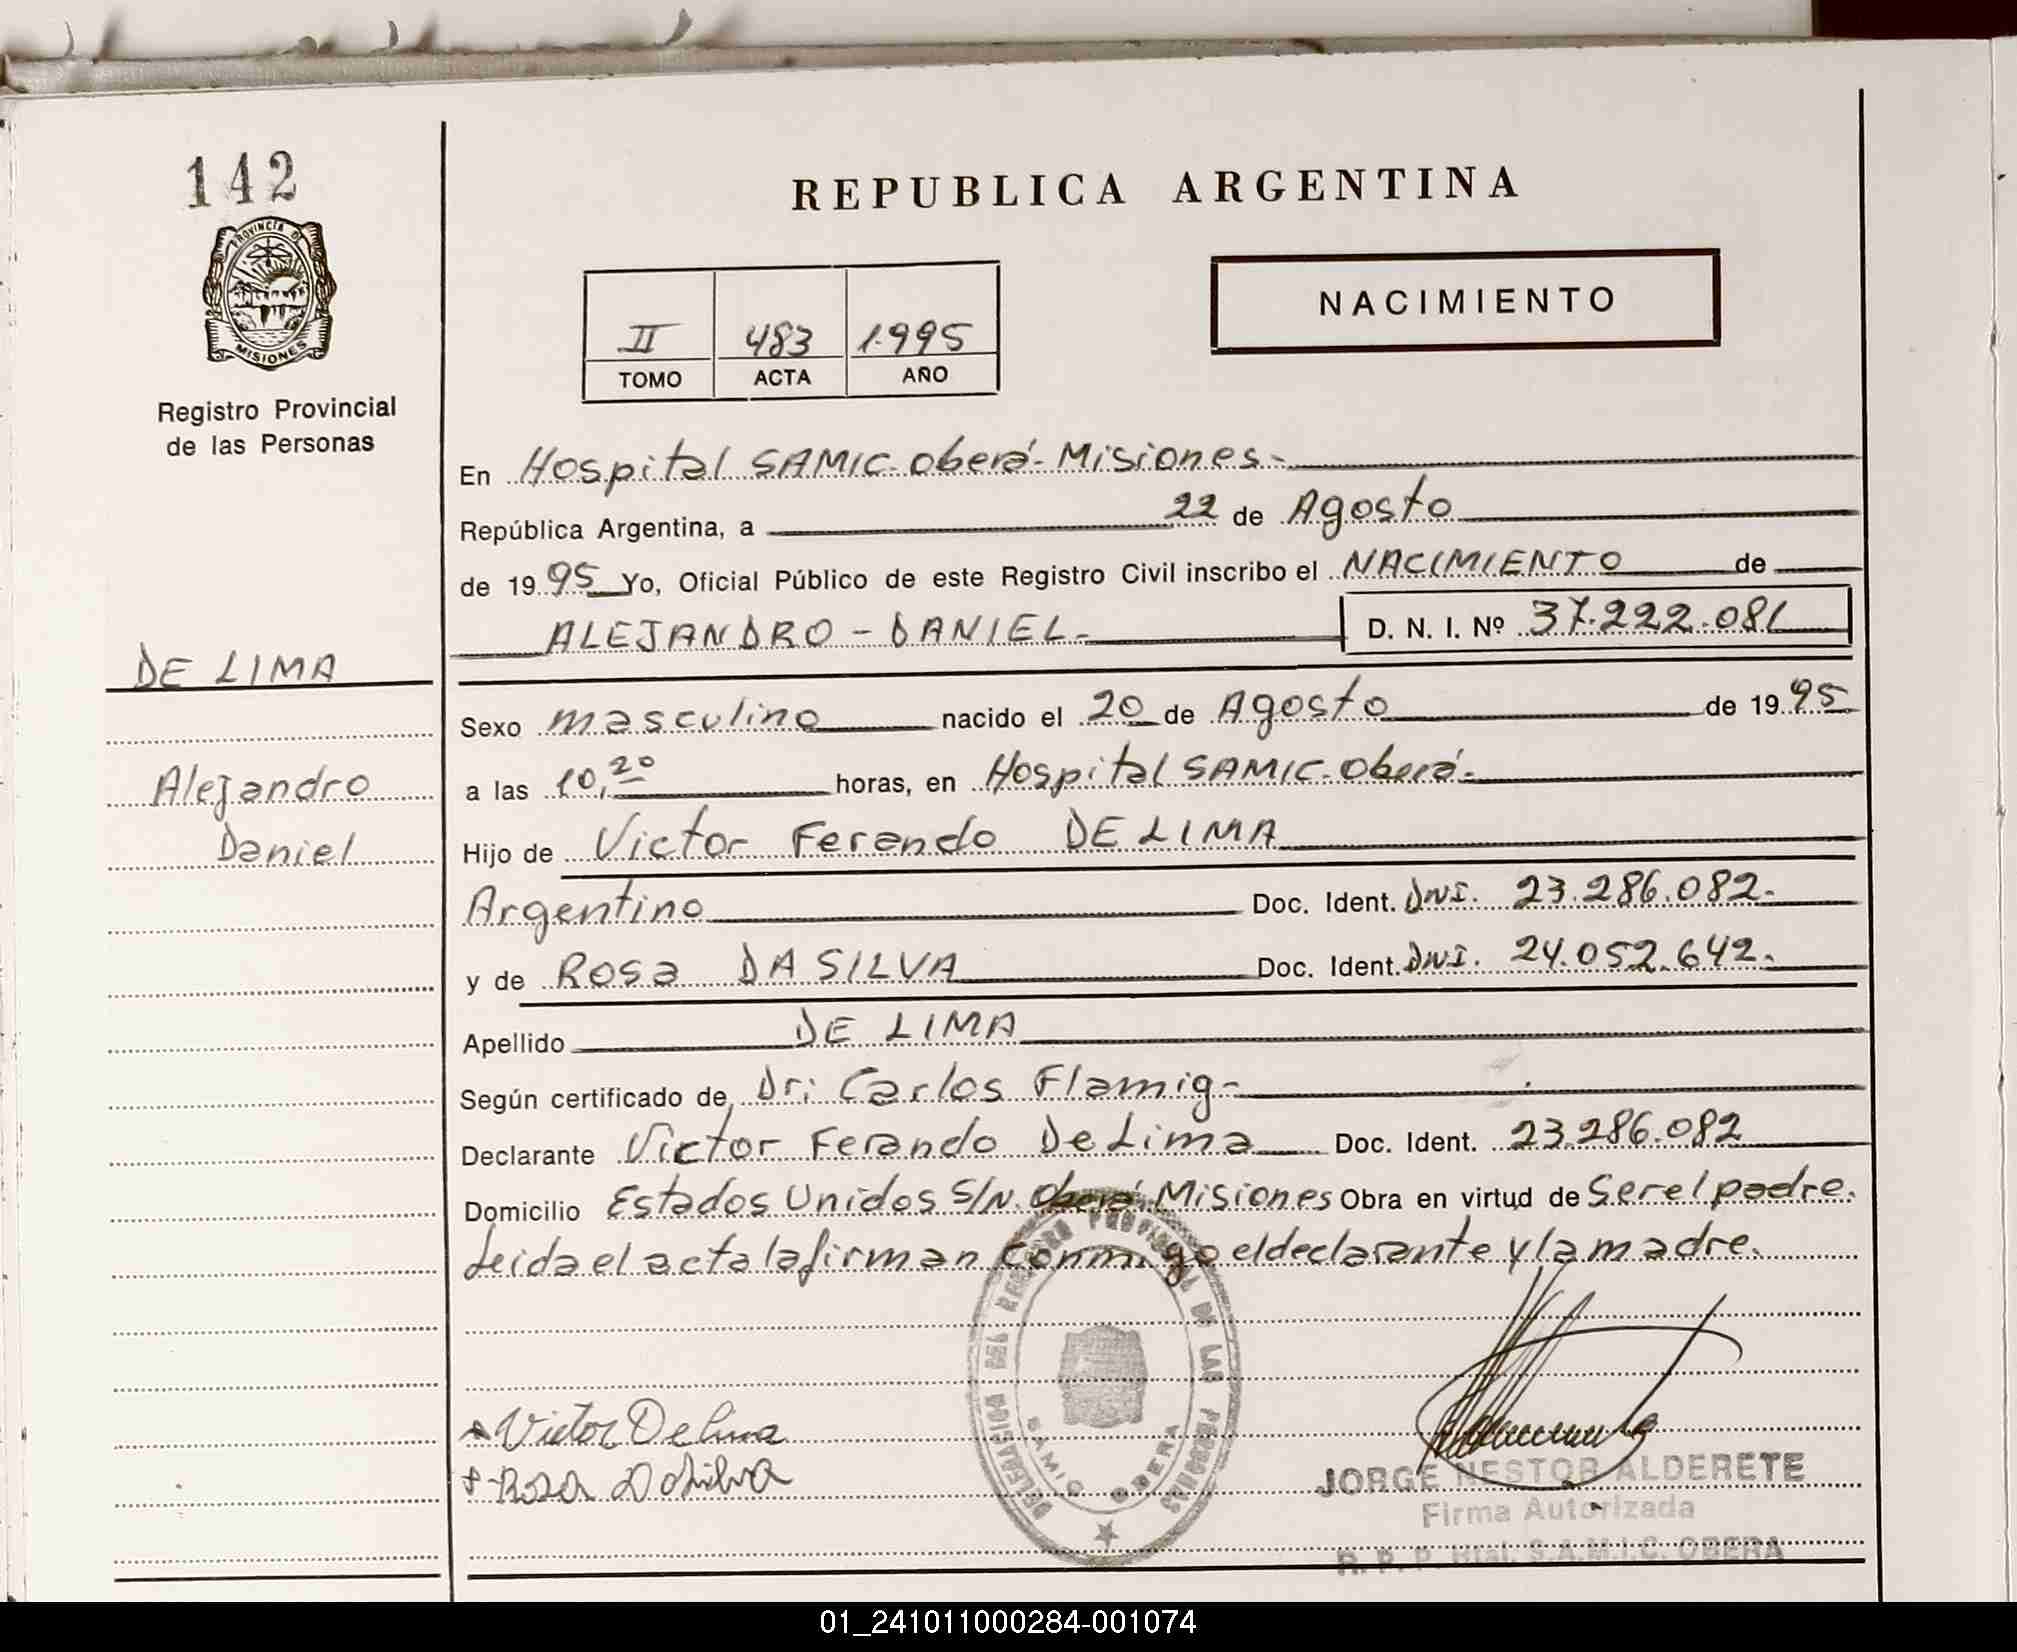 142
PROVINCIA DE
MISIONES
Registro Provincial
de las Personas
REPUBLICA ARGENTINA
II 483 1.995
TOMO ACTA AÑO
NACIMIENTO
En Hospital SAMIC-Oberá-Misiones-
República Argentina, a 22 de Agosto
de 1995 Yo, Oficial Público de este Registro Civil inscribo el NACIMIENTO de
ALEJANDRO-DANIEL- D. N. I. Nº 37.222.081
DE LIMA
Alejandro
Daniel
Sexo masculino nacido el 20 de Agosto de 1995
a las 10,20 horas, en Hospital SAMIC-Oberá-
Hijo de Victor Ferando DE LIMA
Argentino Doc. Ident. DNI. 23.286.082-
y de Rosa DA SILVA Doc. Ident. DNI. 24.052.642-
Apellido DE LIMA
Según certificado de Dr: Carlos Flamig-
Declarante Victor Ferando De Lima Doc. Ident. 23.286.082
Domicilio Estados Unidos S/N. Oberá-Misiones Obra en virtud de Ser el padre.
Leida el acta la firman conmigo el declarante y la madre.
DELEGACION DEL REGISTRO PROVINCIAL DE LAS PERSONAS
SAMIC OBERA
Victor De Lima
Rosa Da Silva
JORGE NESTOR ALDERETE
Firma Autorizada
R. P. P. Htal. S.A.M.I.C. OBERA
01_241011000284-001074